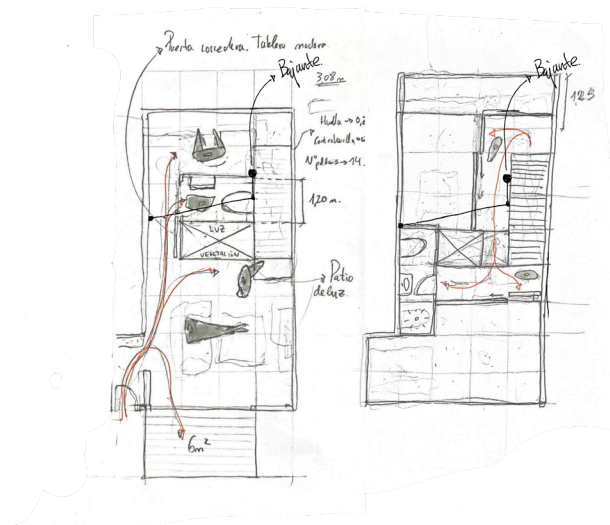 Puerta corredera. Tablero madera
Bajante.
308 m
Huella → 0,2
Contrahuella
Nº peldaños → 14.
1,20 m.
LUZ
VEGETACIÓN
Patio
de luz
6m²
Bajante.
1.25